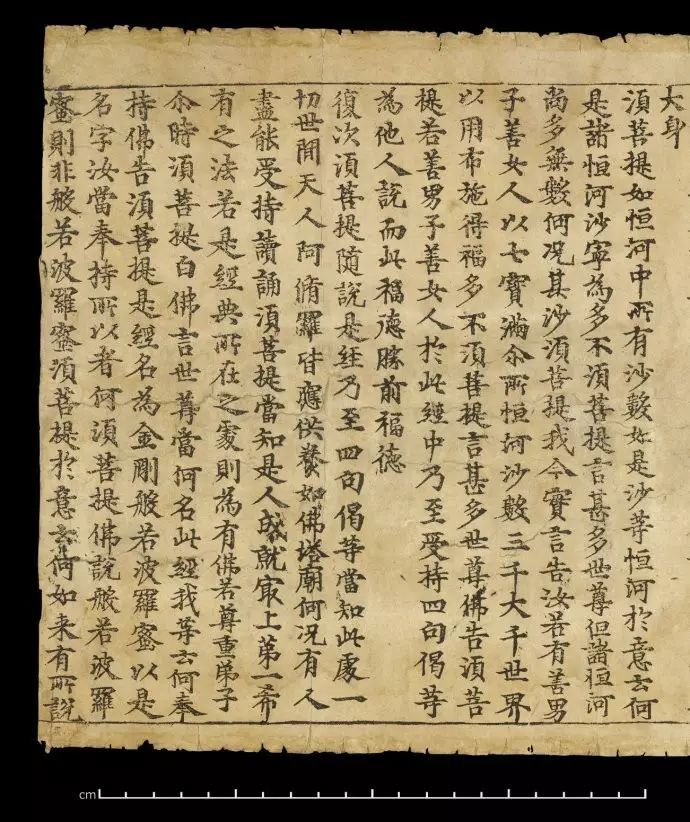 大身
須菩提如恒河中所有沙數如是沙等恒河於意云何
是諸恒河沙寧為多不須菩提言甚多世尊但諸恒河
尚多無數何況其沙須菩提我今實言告汝若有善男
子善女人以七寶滿尒所恒河沙數三千大千世界
以用布施得福多不須菩提言甚多世尊佛告須菩
提若善男子善女人於此經中乃至受持四句偈等
為他人說而此福德勝前福德
復次須菩提隨說是經乃至四句偈等當知此處一
切世間天人阿脩羅皆應供養如佛塔廟何況有人
盡能受持讀誦須菩提當知是人成就㝡上第一希
有之法若是經典所在之處則為有佛若尊重弟子
尒時須菩提白佛言世尊當何名此經我等云何奉
持佛告須菩提是經名為金剛般若波羅蜜以是
名字汝當奉持所以者何須菩提佛說般若波羅
蜜則非般若波羅蜜須菩提於意云何如来有所說
cm